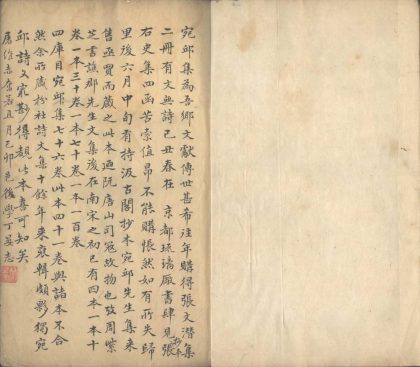 宛邱集為吾鄉文獻傳世甚希往年購得張文潛集
二冊有文無詩己丑春在 京都琉璃廠書肆見張
右史集四函苦索值昂不能購悵然如有所失歸
里後六月中旬有持汲古閣抄本宛邱先生集來
售亟買而藏之此本迺阮唐山司寇故物也攷周紫
芝書譙郡先生文集後在南宋之初已有四本一本十
卷一本三十卷一本七十卷一本一百卷
四庫目宛邱集七十六卷此本四十一卷與諸本不合
然余所藏枌社詩文集十餘年來裒輯頗夥獨宛
邱詩文寂尠得頡此本喜可知矣
屠維赤奮若且月己卯邑後學丁晏志